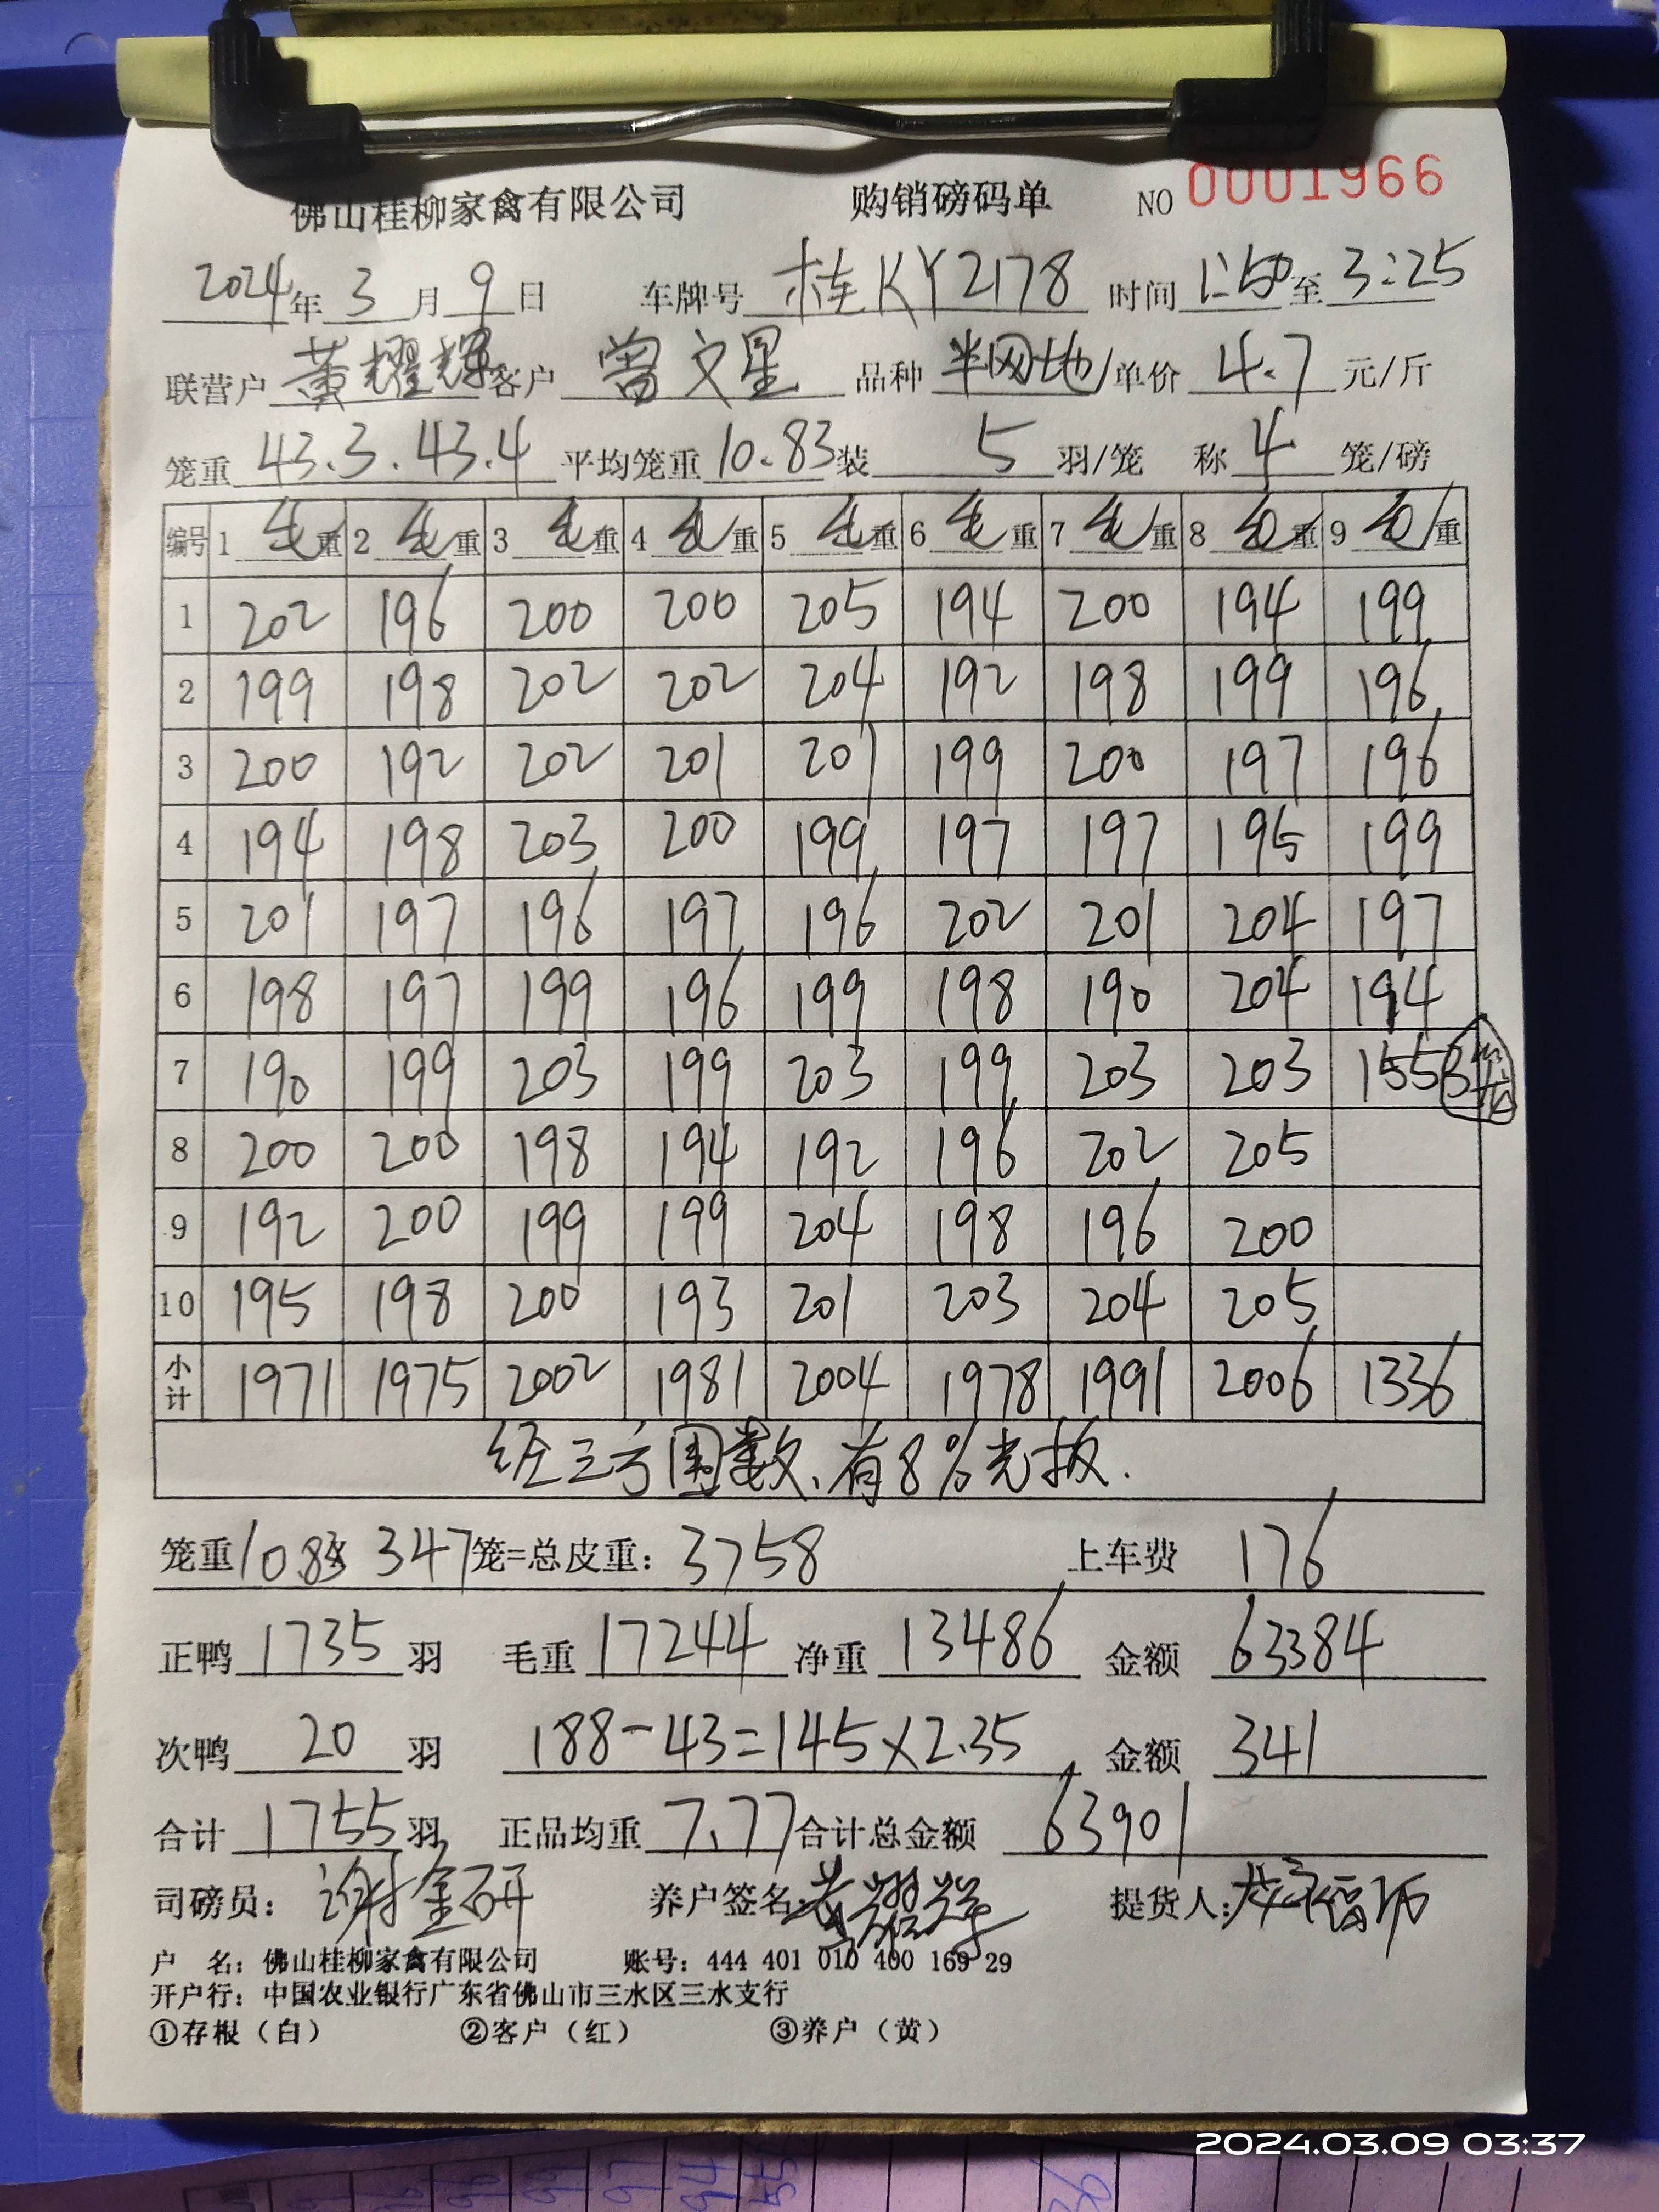 佛山桂柳家禽有限公司 购销磅码单 NO 0001966
2024年3月9日 车牌号 桂KY2178 时间 1:50至3:25
联营户 黄耀辉 客户 曾文星 品种 半网地 单价 4.7 元/斤
笼重 43.3.43.4 平均笼重 10.83 装 5 羽/笼 称 4 笼/磅
编号 1 毛重 2 毛重 3 毛重 4 毛重 5 毛重 6 毛重 7 毛重 8 毛重 9 毛重
1 202 196 200 200 205 194 200 194 199
2 199 198 202 202 204 192 198 199 196
3 200 192 202 201 201 199 200 197 196
4 194 198 203 200 199 197 197 195 199
5 201 197 196 197 196 202 201 204 197
6 198 197 199 196 199 198 190 204 194
7 190 199 203 199 203 199 203 203 155 3笼
8 200 200 198 194 192 196 202 205
9 192 200 199 199 204 198 196 200
10 195 198 200 193 201 203 204 205
小计 1971 1975 2002 1981 2004 1978 1991 2006 1336
经三方围数、有8%光板.
笼重 10.83 347笼=总皮重: 3758 上车费 176
正鸭 1735 羽 毛重 17244 净重 13486 金额 63384
次鸭 20 羽 188-43=145×2.35 金额 341
合计 1755 羽 正品均重 7.77 合计总金额 63901
司磅员: 谢金研 养户签名: 黄耀辉 提货人:
户 名: 佛山桂柳家禽有限公司 账号: 444 401 010 400 169 29
开户行: 中国农业银行广东省佛山市三水区三水支行
①存根（白） ②客户（红） ③养户（黄）
2024.03.09 03:37